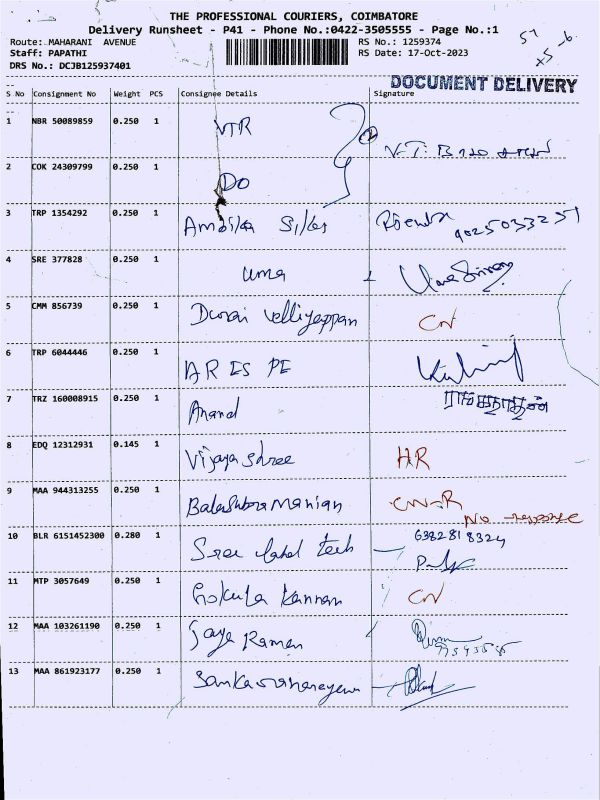 THE PROFESSIONAL COURIERS, COIMBATORE
Delivery Runsheet - P41 - Phone No.:0422-3505555 - Page No.:1
Route: MAHARANI AVENUE RS No.: 1259374
Staff: PAPATHI RS Date: 17-Oct-2023
DRS No.: DCJB125937401
DOCUMENT DELIVERY
S No Consignment No Weight PCS Consignee Details Signature
1 NBR 50089859 0.250 1 VTR
2 COK 24309799 0.250 1 Do
3 TRP 1354292 0.250 1 Ambika Silks 9025033251
4 SRE 377828 0.250 1 Uma
5 CMM 856739 0.250 1 Durai Velliyappan CN
6 TRP 6044446 0.250 1 AR ES PE
7 TRZ 160008915 0.250 1 Anand ராஙகநாதன்
8 EDQ 12312931 0.145 1 Vijaya Shree HR
9 MAA 944313255 0.250 1 Balashubramanian CN-R
No response
10 BLR 6151452300 0.280 1 Sree Label Tech 6382818324
11 MTP 3057649 0.250 1 Gokula Kannan CN
12 MAA 103261190 0.250 1 Jaya Raman
13 MAA 861923177 0.250 1 Sankaranarayanan